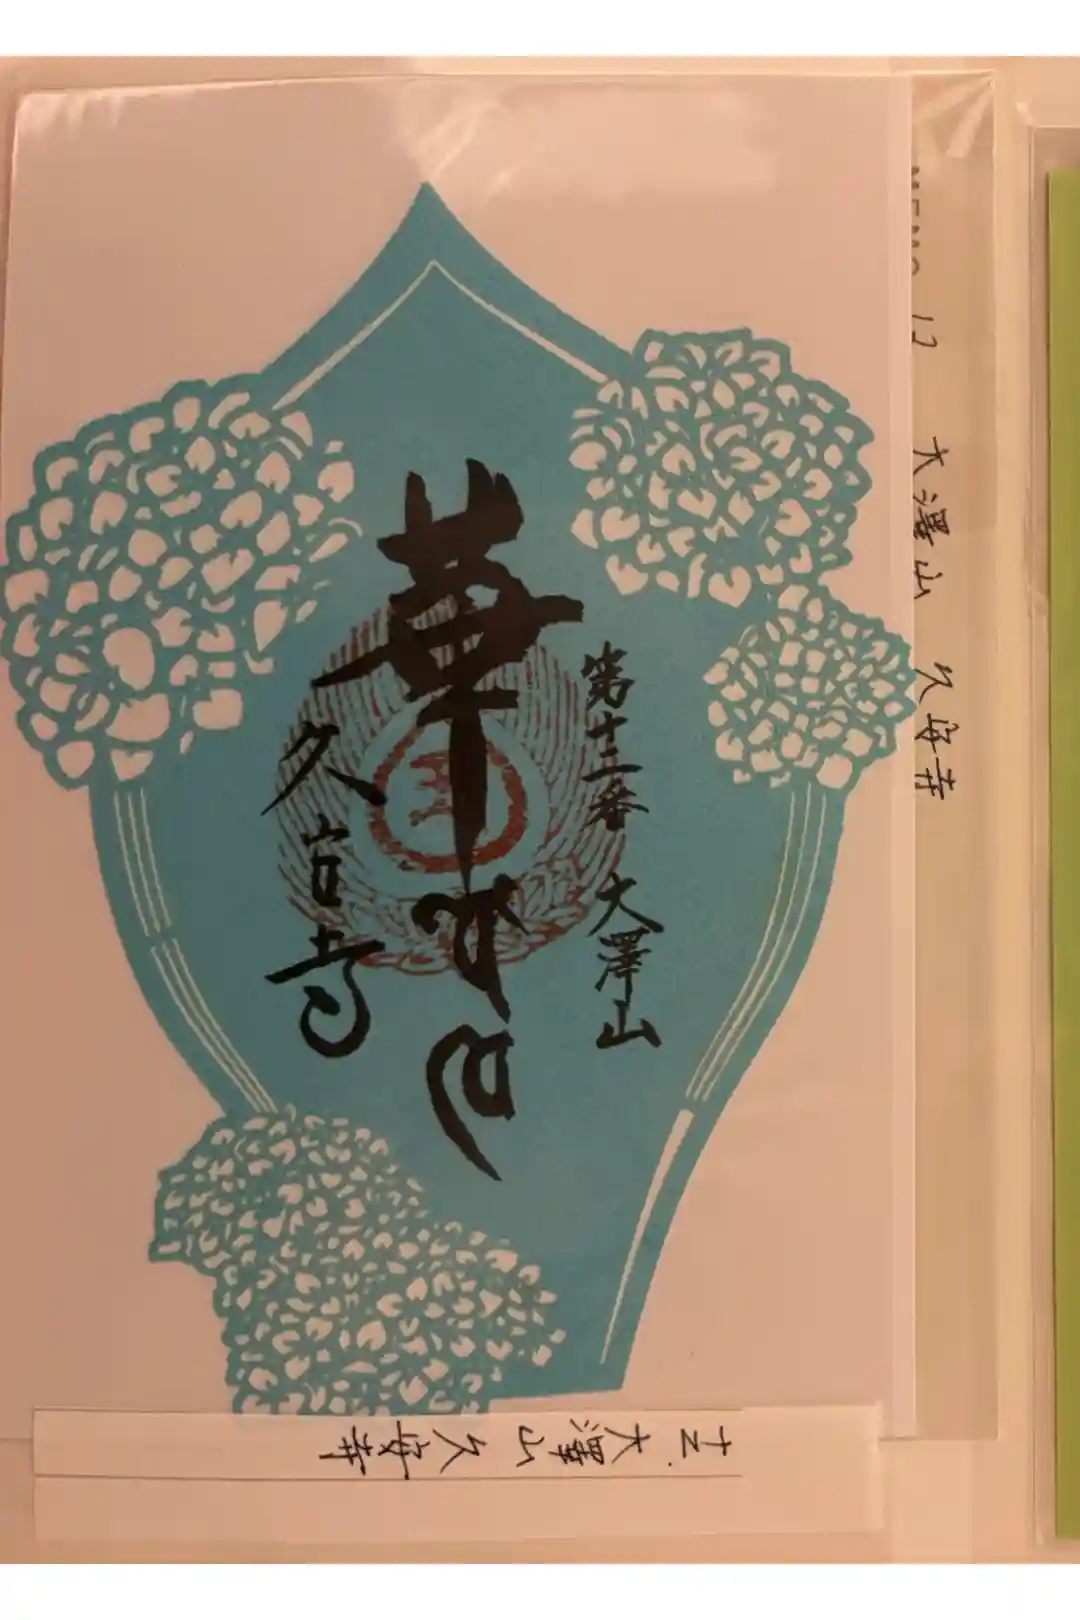 第十三番 大澤山
華
久安寺
MEMO
大澤山 久安寺
大澤山久安寺